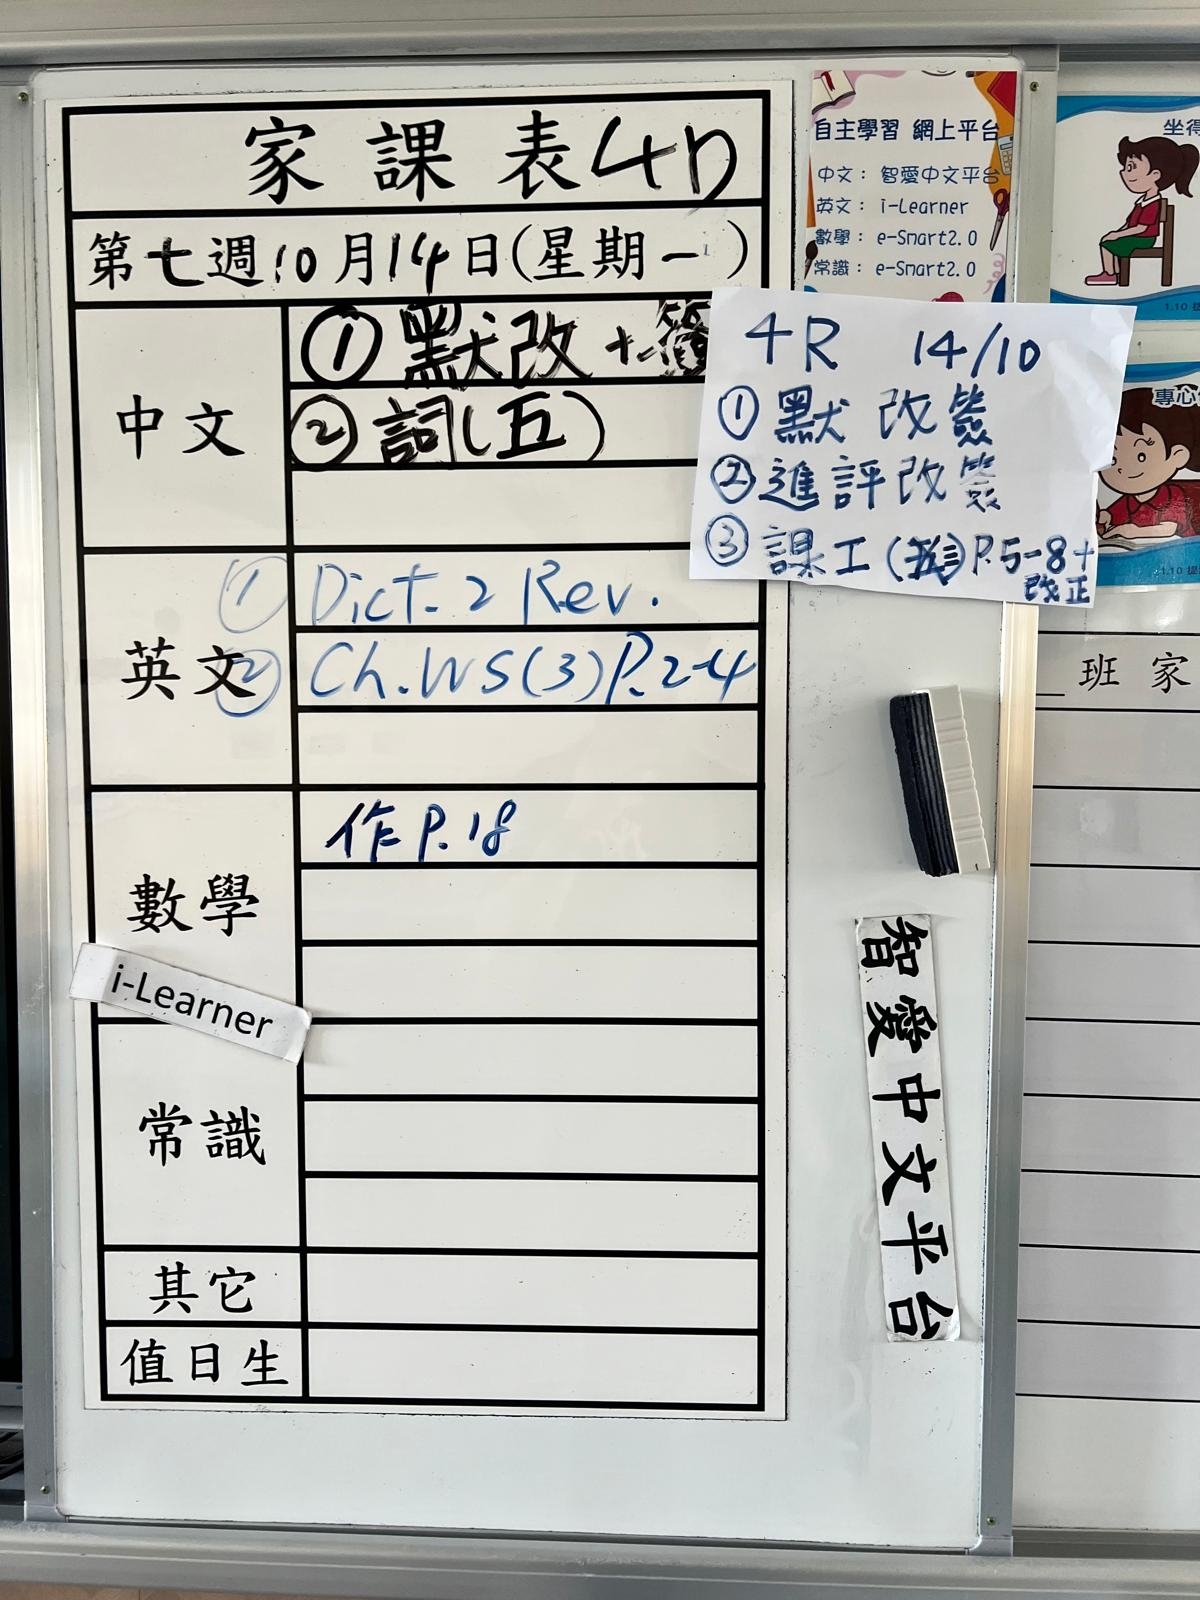 家課表4D
第七週10月14日(星期一)
中文
①默改+簽
②詞(五)
英文
① Dict. 2 Rev.
② Ch.WS(3)P.2-4
數學
作P.18
i-Learner
常識
其它
值日生
自主學習 網上平台
中文： 智愛中文平台
英文： i-Learner
數學： e-Smart2.0
常識： e-Smart2.0
4R 14/10
①默改簽
②進評改簽
③課工() P.5-8+
改正
智愛中文平台
坐得
1.10
專心
1.10
班家